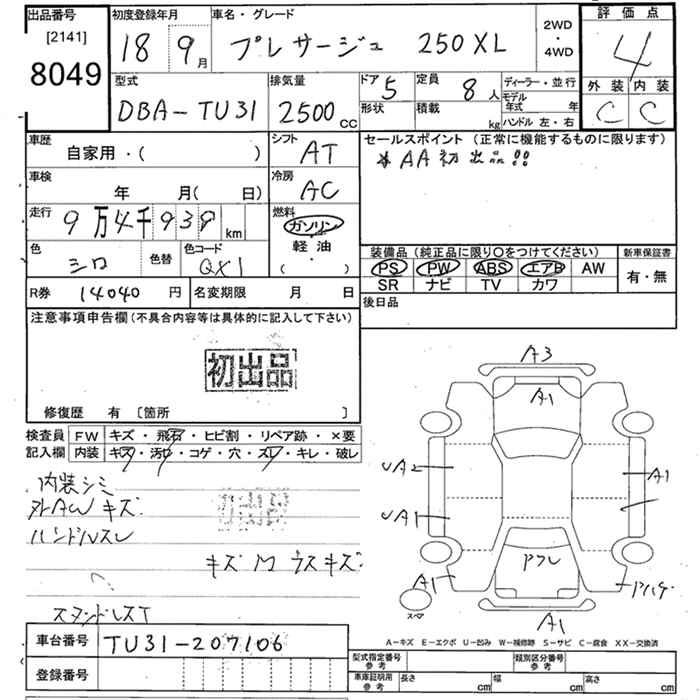 出品番号 初度登録年月 車名・グレード 2WD・4WD 評価点
[2141] 8049 18 9月 プレサージュ 250XL 4
型式 排気量 ドア 5 定員 8人 ディーラー・並行 外装 内装
DBA-TU31 2500cc 形状 積載 kg モデル年式 年 C C
ハンドル 左・右
車歴 自家用・( ) シフト AT セールスポイント(正常に機能するものに限ります)
*AA初出品!!
車検 年 月( 日) 冷房 AC
走行 9万4千939km 燃料 ガソリン
軽油
( ・ )
装備品(純正品に限り〇をつけてください) 新車保証書
色 シロ 色替 色コード QX1 PS PW ABS エアB AW 有・無
SR ナビ TV カワ
R券 14040円 名変期限 月 日 後日品
注意事項申告欄(不具合内容等は具体的に記入して下さい)
初出品
修復歴 有 [箇所 ]
検査員 FW キズ・飛石・ヒビ割・リペア跡・×要
記入欄 内装 キズ・汚レ・コゲ・穴・スレ・キレ・破レ
内装シミ
外AWキズ
ハンドルスレ
キズ M ウスキズ
A3
A1
UA2 A1
UA1
Pフレ
A1
スペア
A1
車台番号 TU31-207106
A-キズ E-エクボ U-凹み W-補修跡 S-サビ C-腐食 XX-交換済
登録番号 型式指定番号 参考 類別区分番号 参考
車庫証明用 参考 長さ cm 幅 cm 高さ cm